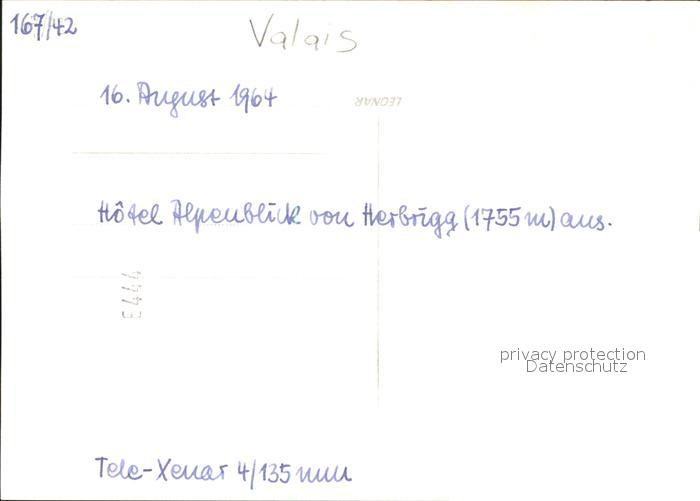 167/42
Valais
16. August 1964
LEONAR
Hôtel Alpenblick von Herbrigg (1755 m) aus.
privacy protection
Datenschutz
Tele-Xenar 4/135 mm